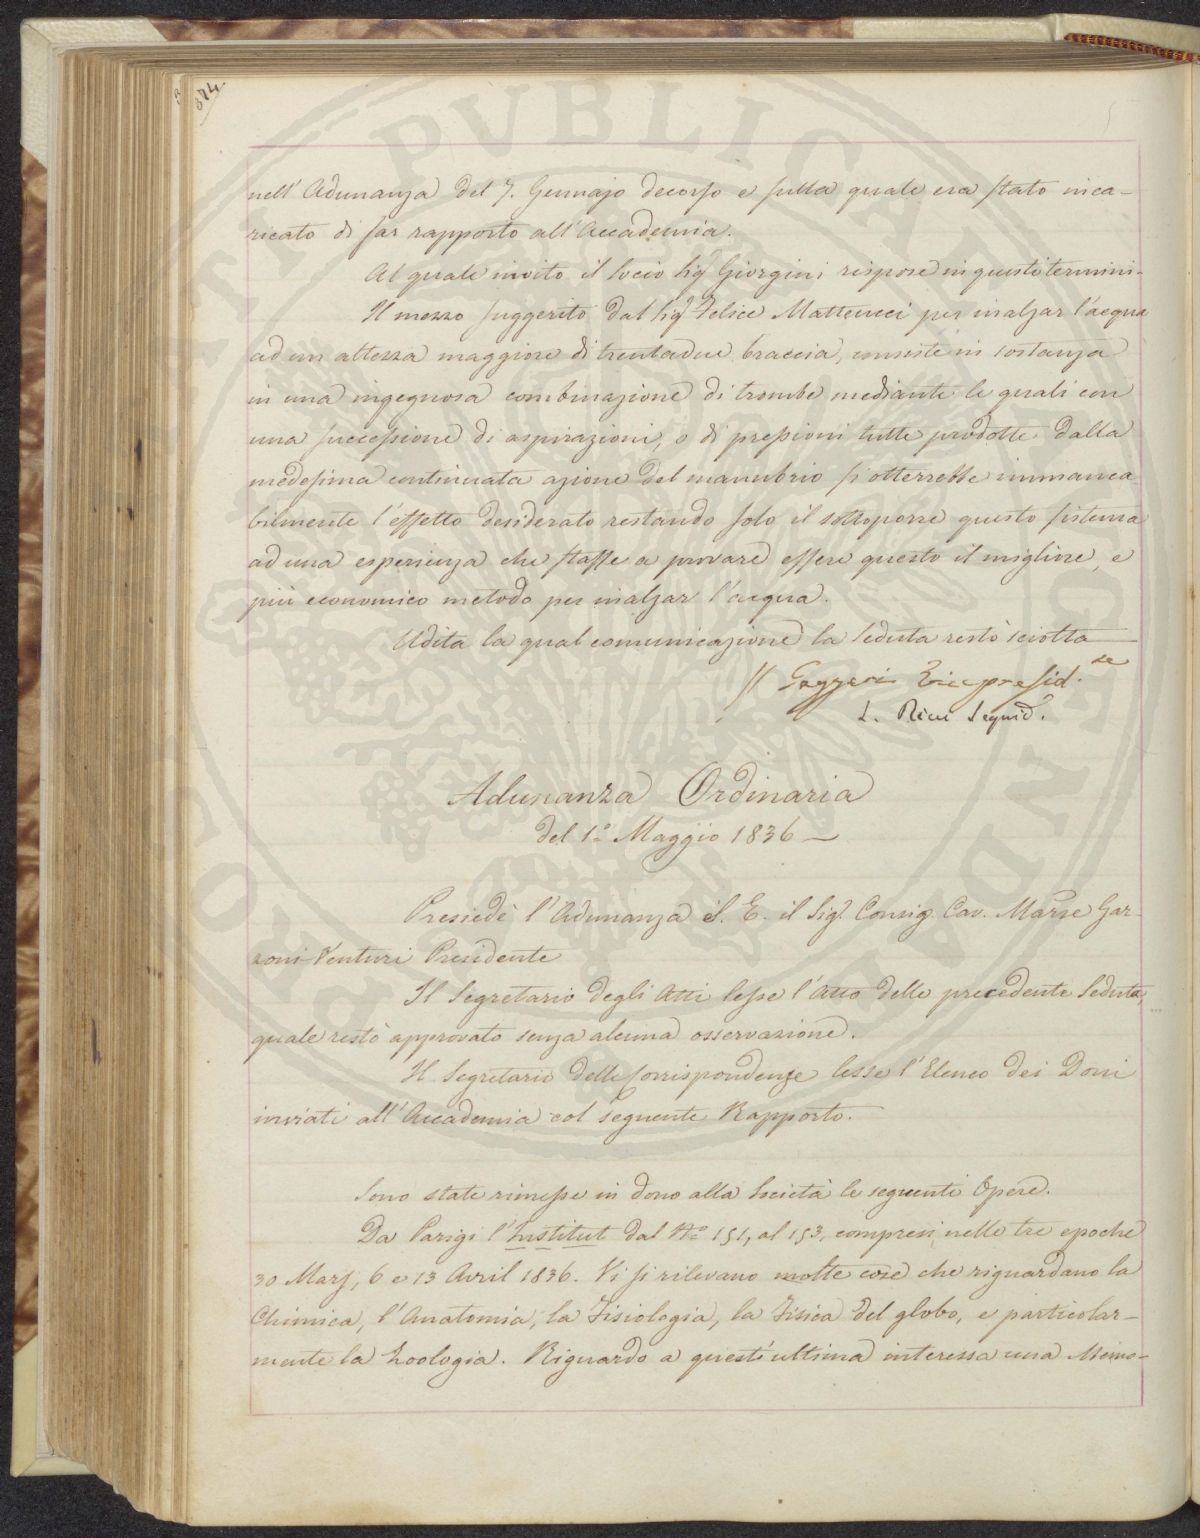 374.
nell' Adunanza del 7. Gennajo decorso e sulla quale era stato inca-
ricato di far rapporto all' Accademia.
Al quale invito il socio Sigr Giorgini rispose in questi termini.
Il mezzo suggerito dal Sigr Felice Matteucci per inalzar l'acqua
ad un altezza maggiore di trentadue braccia, consiste in sostanza
in una ingegnosa combinazione di trombe mediante le quali con
una successione di aspirazioni, o di pressioni tutte prodotte dalla
medesima continuata azione del manubrio si otterrebbe immanca
bilmente l'effetto desiderato restando solo il sottoporre questo sistema
ad una esperienza che stasse a provare essere questo il migliore, e
più economico metodo per inalzar l'acqua.
Udita la qual comunicazione la seduta restò sciolta
Gazzeri Vicepresid.te
L. Ricci Segrid.
Adunanza Ordinaria
del 1o Maggio 1836
Presiedè l'Adunanza S. E. il Sigr. Consig. Cav. Marse Gar-
zoni Venturi Presidente
Il Segretario degli Atti lesse l'Atto delle precedente Seduta,
quale restò approvato senza alcuna osservazione.
Il Segretario delle Corrispondenze lesse l'Elenco dei Doni
inviati all'Accademia col seguente Rapporto.
Sono state rimesse in dono alla Società le seguenti Opere.
Da Parigi l'Institut dal No 151, al 153, compresi nelle tre epoche
30 Mars, 6 e 13 Avril 1836. Vi si rilevano molte cose che riguardano la
Chimica, l'Anatomia, la Fisiologia, la Fisica del globo, e particolar-
mente la Zoologia. Riguardo a quest'ultima interessa una Memo-